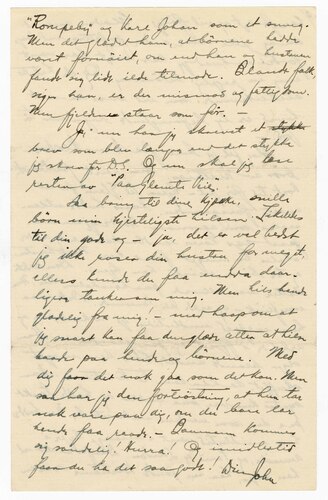 "Rompeby" og Karl Johan som et smug.
Men det glædet ham, at børnene hadde
vært fornøiet, om end han og hustruen
fandt sig lidt ilde tilmode. Blandt folk,
siger han, er der mismod og fattigdom.
Men fjeldene staar som før. —
Ja, nu har jeg skrevet et stykke
brev som blev længer end det stykke
jeg skrev for D.S. Og nu skal jeg læse
resten av "Paa Glemte Veie".
Saa bring til dine kjække, snilde
børn min hjerteligste hilsen. Likeledes
til din gode og — ja, det er vel bedst
jeg ikke roser din hustru for meget,
ellers kunde du faa endda daar-
ligere tanker om mig. Men hils hende
gladelig fra mig! — med haap om at
jeg snart kan faa den glæde atter at hilse
baade paa hende og børnene. Med
dig faar det nok gaa som det kan. Men
saa har jeg den fortrøstning, at hun tar
nok vare paa dig, om du bare lar
hende faa raade. — Baumann kommer
sig vandelig! Hurra! Og imidlertid
faar du ha det saa godt! Din John